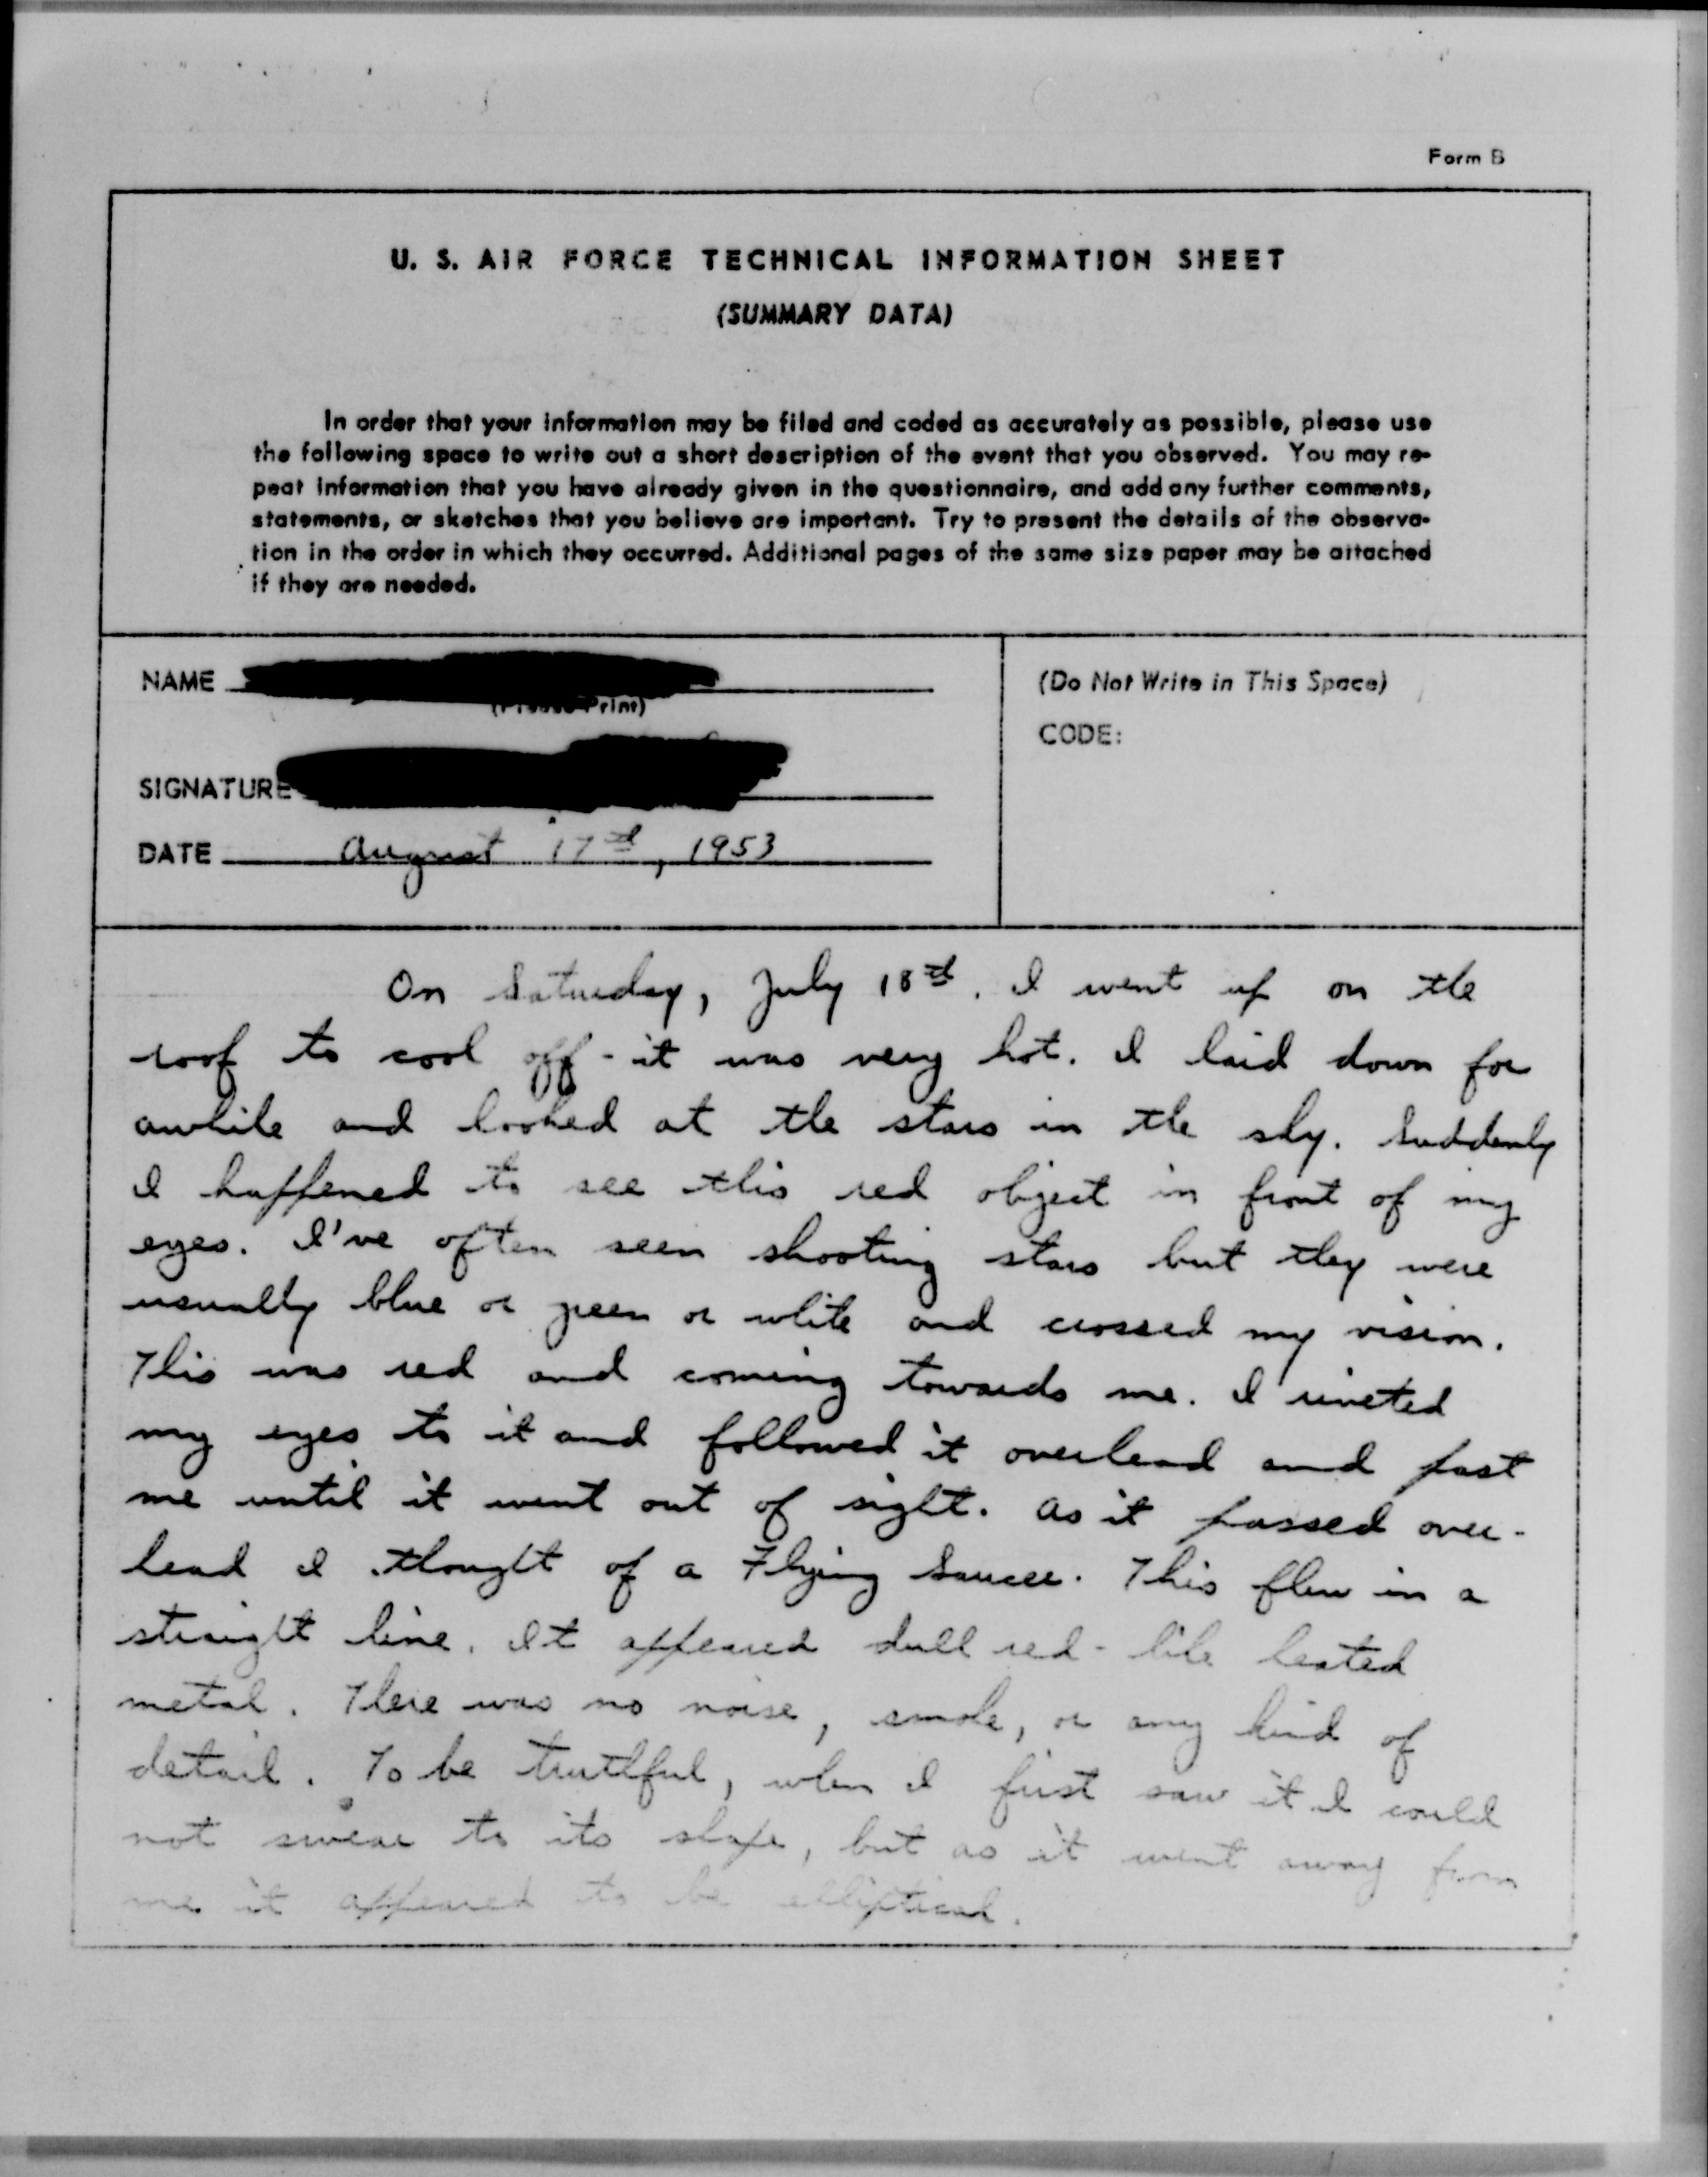 Form B
U. S. AIR FORCE TECHNICAL INFORMATION SHEET
(SUMMARY DATA)
In order that your information may be filed and coded as accurately as possible, please use
the following space to write out a short description of the event that you observed. You may re-
peat information that you have already given in the questionnaire, and add any further comments,
statements, or sketches that you believe are important. Try to present the details of the observa-
tion in the order in which they occurred. Additional pages of the same size paper may be attached
if they are needed.
NAME
(Please Print)
SIGNATURE
DATE August 17th, 1953
(Do Not Write in This Space)
CODE:
On Saturday, July 18th, I went up on the
roof to cool off - it was very hot. I laid down for
awhile and looked at the stars in the sky. Suddenly
I happened to see this red object in front of my
eyes. I've often seen shooting stars but they were
usually blue or green or white and crossed my vision.
This was red and coming towards me. I riveted
my eyes to it and followed it overhead and past
me until it went out of sight. As it passed over-
head I thought of a Flying Saucer. This flew in a
straight line. It appeared dull red - like heated
metal. There was no noise, smoke, or any kind of
detail. To be truthful, when I first saw it I could
not swear to its shape, but as it went away from
me it appeared to be elliptical.